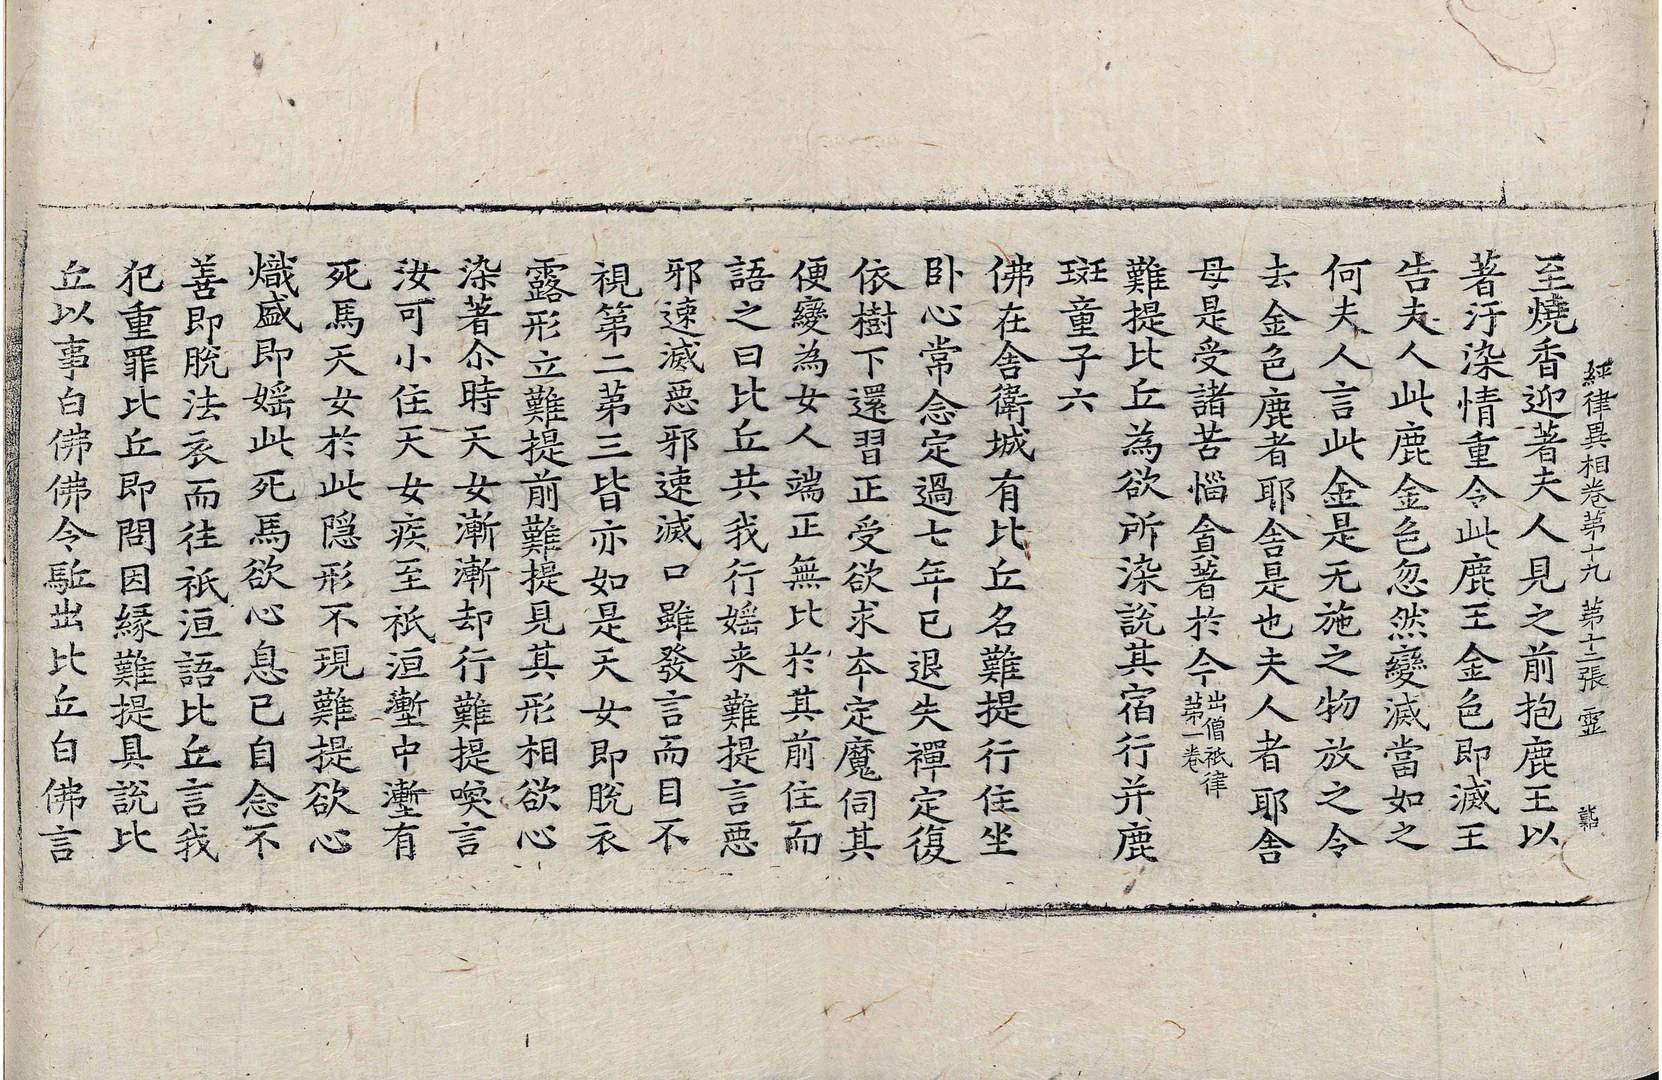 經律異相卷第十九 第十二張 靈
至燒香迎著夫人見之前抱鹿王以
著汙染情重令此鹿王金色即滅王
告夫人此鹿金色忽然變滅當如之
何夫人言此金是无施之物放之令
去金色鹿者耶舍是也夫人者耶舍
母是受諸苦惱貪著於今出僧祇律第一卷
難提比丘為欲所染說其宿行并鹿
斑童子六
佛在舍衛城有比丘名難提行住坐
卧心常念定過七年已退失禪定復
依樹下還習正受欲求夲定魔伺其
便變為女人端正無比於其前住而
語之曰比丘共我行婬来難提言惡
邪速滅惡邪速滅口雖發言而目不
視第二第三皆亦如是天女即脫衣
露形立難提前難提見其形相欲心
染著尒時天女漸漸却行難提喚言
汝可小住天女疾至祇洹壍中壍有
死馬天女於此隱形不現難提欲心
熾盛即婬此死馬欲心息已自念不
善即脫法衣而往祇洹語比丘言我
犯重罪比丘即問因緣難提具說比
丘以事白佛佛令駈出比丘白佛言